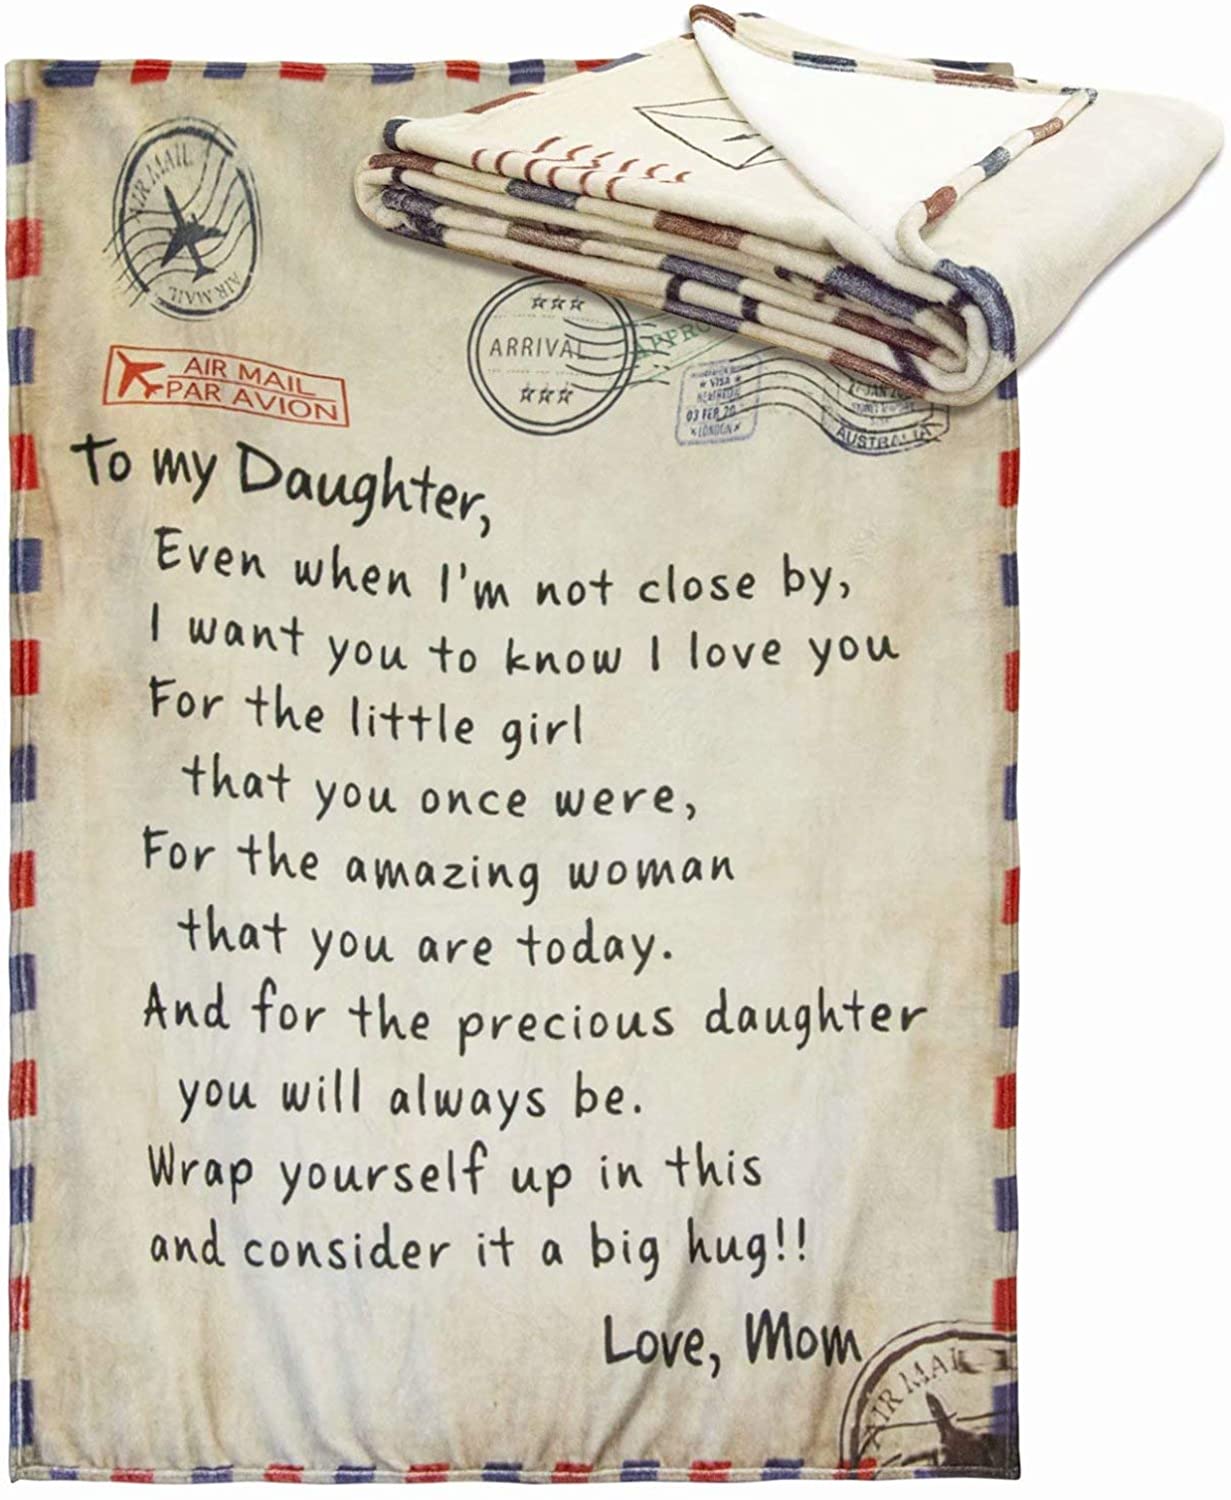 AIR MAIL
AIR MAIL
ARRIVAL
AIR MAIL
PAR AVION
VISA
03 FEB 20
LONDON
AUSTRALIA
To my Daughter,
Even when I'm not close by,
I want you to know I love you
For the little girl
that you once were,
For the amazing woman
that you are today.
And for the precious daughter
you will always be.
Wrap yourself up in this
and consider it a big hug!!
Love, Mom
AIR MAIL